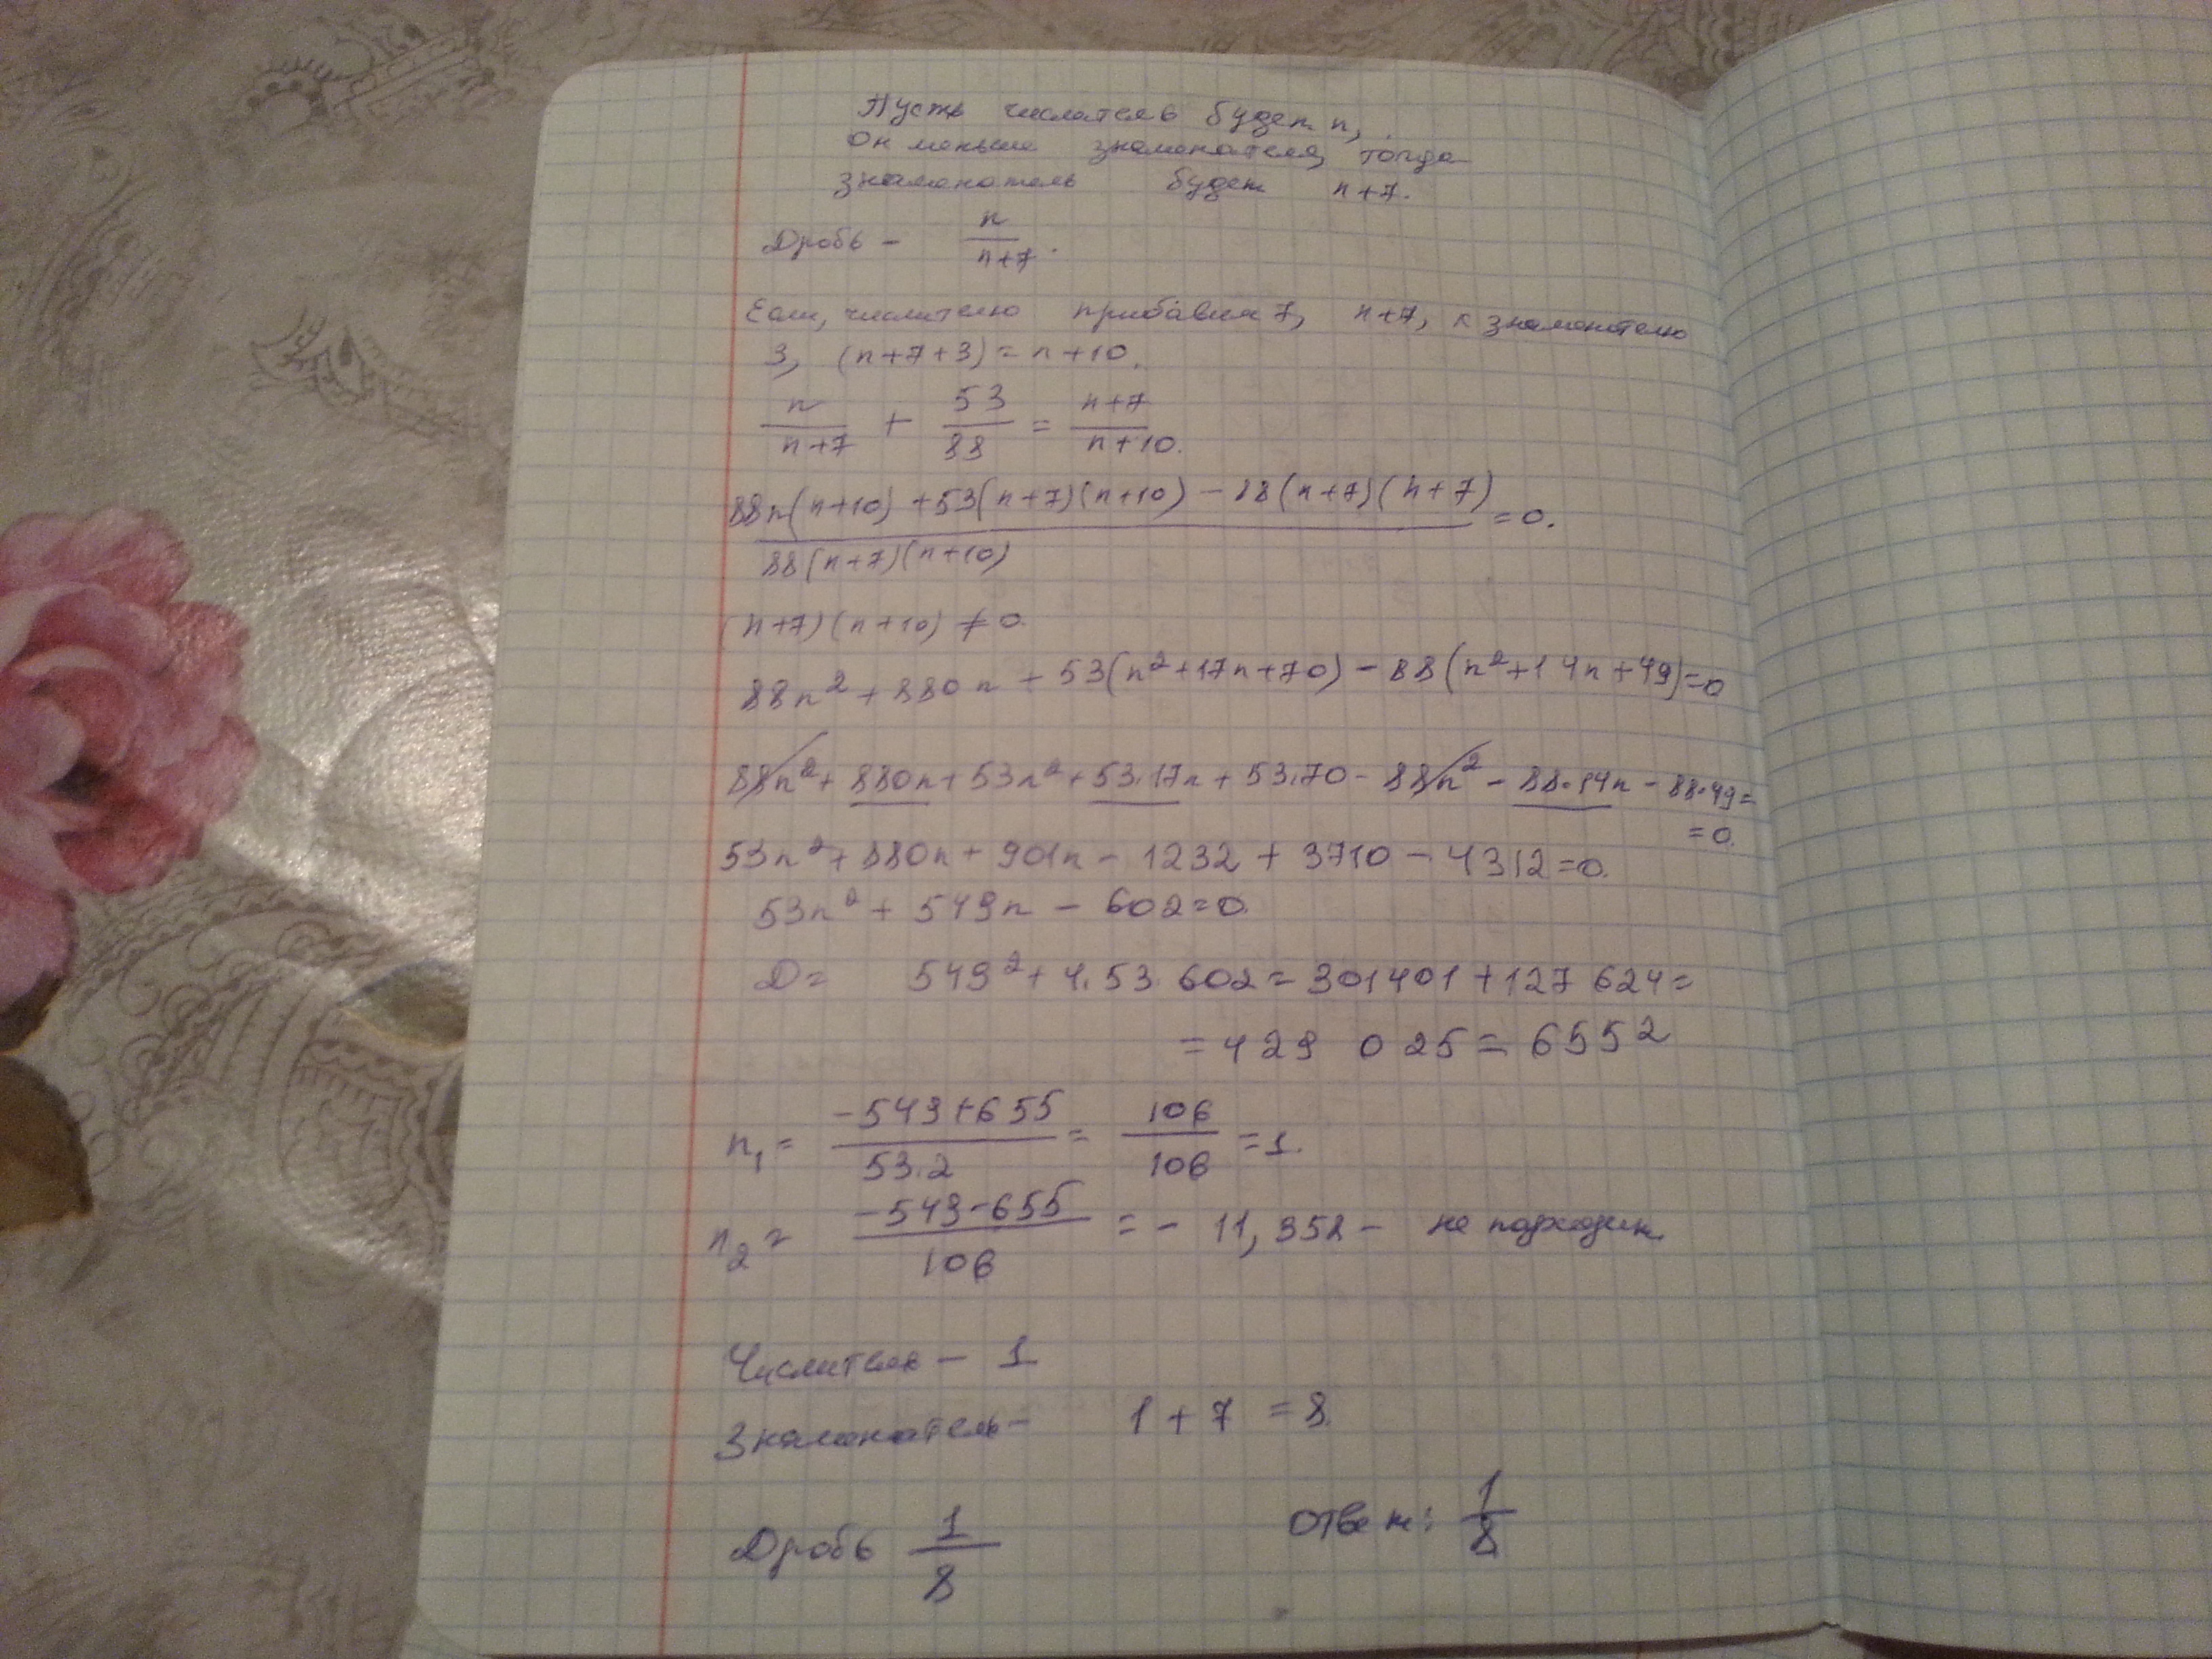 Пусть числитель будет n,
Он меньше знаменателя, тогда
знаменатель будет n+7.
Дробь - n/(n+7).
Если, числителю прибавим 7, n+7, к знаменателю
3, (n+7+3)=n+10.
n/(n+7) + 53/88 = (n+7)/(n+10).
(88n(n+10)+53(n+7)(n+10)-88(n+7)(n+7))/(88(n+7)(n+10)) =0.
(n+7)(n+10)≠0
88n²+880n+53(n²+17n+70)-88(n²+14n+49)=0
88n²+880n+53n²+53.17n+53.70-88n²-88.14n-88.49=
=0.
53n²+880n+901n-1232+3710-4312=0.
53n²+549n-602=0.
D= 549²+4.53.602=301401+127624=
=429 025=655²
n₁= (-549+655)/(53.2) = 106/106 =1.
n₂= (-549-655)/106 = - 11,358 - не подходит.
Числитель - 1
Знаменатель - 1+7=8.
Дробь 1/8 Ответ: 1/8